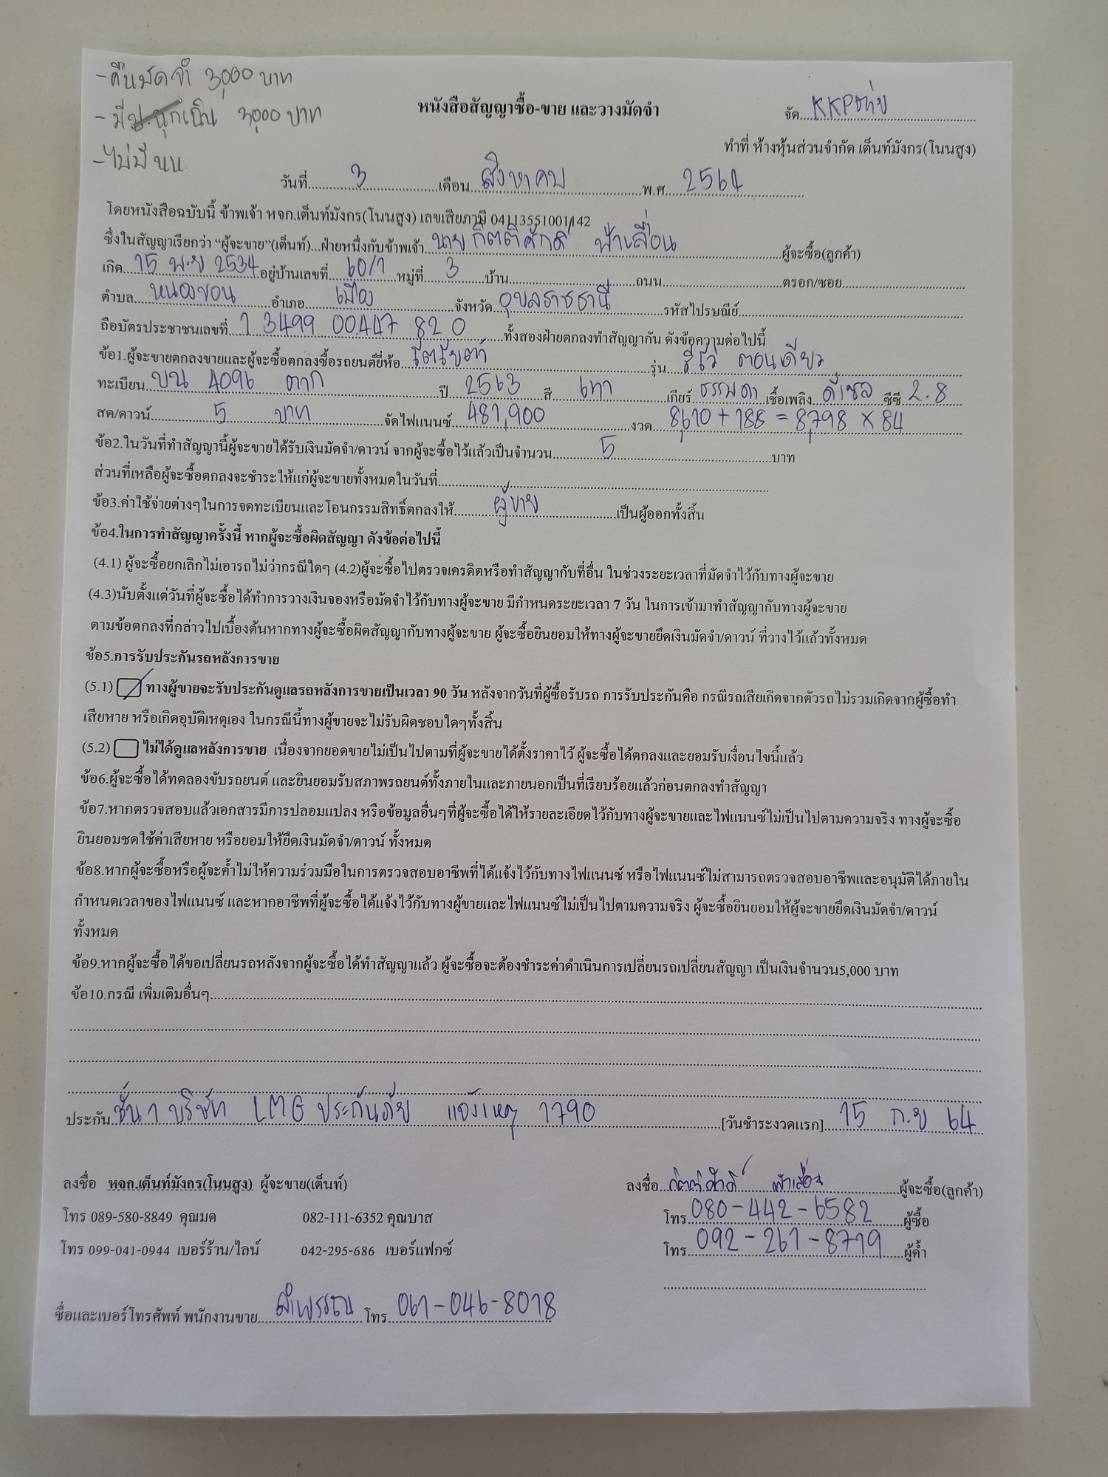 -คืนมัดจำ 3,000 บาท
- มี 3,000 บาท
-ไม่มี
หนังสือสัญญาซื้อ-ขาย และวางมัดจำ
จัด KKP
ทำที่ ห้างหุ้นส่วนจำกัด เต็นท์มังกร(โนนสูง)
วันที่ 3 เดือน สิงหาคม พ.ศ. 2564
โดยหนังสือฉบับนี้ ข้าพเจ้า หจก.เต็นท์มังกร(โนนสูง) เลขเสียภาษี 04113551001442
ซึ่งในสัญญาเรียกว่า "ผู้จะขาย"(เต็นท์)...ฝ่ายหนึ่งกับข้าพเจ้า นาย กิตติศักดิ์ ฟ้าเลื่อน ผู้จะซื้อ(ลูกค้า)
เกิด 15 พ.ย 2534 อยู่บ้านเลขที่ 60/1 หมู่ที่ 3 บ้าน ถนน ตรอก/ซอย
ตำบล หนองขอน อำเภอ เมือง จังหวัด อุบลราชธานี รหัสไปรษณีย์
ถือบัตรประชาชนเลขที่ 1 3499 00447 82 0 ทั้งสองฝ่ายตกลงทำสัญญากัน ดังข้อความต่อไปนี้
ข้อ1.ผู้จะขายตกลงขายและผู้จะซื้อตกลงซื้อรถยนต์ยี่ห้อ โตโยต้า รุ่น รีโว่ ตอนเดียว
ทะเบียน บน 4096 ตาก ปี 2563 สี เทา เกียร์ ธรรมดา เชื้อเพลิง ดีเซล ซีซี 2.8
สด/ดาวน์ 5 บาท จัดไฟแนนซ์ 481,900 งวด 8,610 + 188 = 8,798 x 84
ข้อ2.ในวันที่ทำสัญญานี้ผู้จะขายได้รับเงินมัดจำ/ดาวน์ จากผู้จะซื้อไว้แล้วเป็นจำนวน 5 บาท
ส่วนที่เหลือผู้จะซื้อตกลงจะชำระให้แก่ผู้จะขายทั้งหมดในวันที่
ข้อ3.ค่าใช้จ่ายต่างๆในการจดทะเบียนและโอนกรรมสิทธิ์ตกลงให้ ผู้ขาย เป็นผู้ออกทั้งสิ้น
ข้อ4.ในการทำสัญญาครั้งนี้ หากผู้จะซื้อผิดสัญญา ดังข้อต่อไปนี้
(4.1) ผู้จะซื้อยกเลิกไม่เอารถไม่ว่ากรณีใดๆ (4.2)ผู้จะซื้อไปตรวจเครดิตหรือทำสัญญากับที่อื่น ในช่วงระยะเวลาที่มัดจำไว้กับทางผู้จะขาย
(4.3)นับตั้งแต่วันที่ผู้จะซื้อได้ทำการวางเงินจองหรือมัดจำไว้กับทางผู้จะขาย มีกำหนดระยะเวลา 7 วัน ในการเข้ามาทำสัญญากับทางผู้จะขาย
ตามข้อตกลงที่กล่าวไปเบื้องต้นหากทางผู้จะซื้อผิดสัญญากับทางผู้จะขาย ผู้จะซื้อยินยอมให้ทางผู้จะขายยึดเงินมัดจำ/ดาวน์ ที่วางไว้แล้วทั้งหมด
ข้อ5.การรับประกันรถหลังการขาย
(5.1) ทางผู้ขายจะรับประกันดูแลรถหลังการขายเป็นเวลา 90 วัน หลังจากวันที่ผู้ซื้อรับรถ การรับประกันคือ กรณีรถเสียเกิดจากตัวรถ ไม่รวมเกิดจากผู้ซื้อทำ
เสียหาย หรือเกิดอุบัติเหตุเอง ในกรณีนี้ทางผู้ขายจะไม่รับผิดชอบใดๆทั้งสิ้น
(5.2) ไม่ได้ดูแลหลังการขาย เนื่องจากยอดขายไม่เป็นไปตามที่ผู้จะขายได้ตั้งราคาไว้ ผู้จะซื้อได้ตกลงและยอมรับเงื่อนไขนี้แล้ว
ข้อ6.ผู้จะซื้อได้ทดลองขับรถยนต์ และยินยอมรับสภาพรถยนต์ทั้งภายในและภายนอกเป็นที่เรียบร้อยแล้วก่อนตกลงทำสัญญา
ข้อ7.หากตรวจสอบแล้วเอกสารมีการปลอมแปลง หรือข้อมูลอื่นๆที่ผู้จะซื้อได้ให้รายละเอียดไว้กับทางผู้จะขายและไฟแนนซ์ไม่เป็นไปตามความจริง ทางผู้จะซื้อ
ยินยอมชดใช้ค่าเสียหาย หรือยอมให้ยึดเงินมัดจำ/ดาวน์ ทั้งหมด
ข้อ8.หากผู้จะซื้อหรือผู้จะค้ำไม่ให้ความร่วมมือในการตรวจสอบอาชีพที่ได้แจ้งไว้กับทางไฟแนนซ์ หรือไฟแนนซ์ไม่สามารถตรวจสอบอาชีพและอนุมัติได้ภายใน
กำหนดเวลาของไฟแนนซ์ และหากอาชีพที่ผู้จะซื้อได้แจ้งไว้กับทางผู้ขายและไฟแนนซ์ไม่เป็นไปตามความจริง ผู้จะซื้อยินยอมให้ผู้จะขายยึดเงินมัดจำ/ดาวน์
ทั้งหมด
ข้อ9.หากผู้จะซื้อได้ขอเปลี่ยนรถหลังจากผู้จะซื้อได้ทำสัญญาแล้ว ผู้จะซื้อจะต้องชำระค่าดำเนินการเปลี่ยนรถเปลี่ยนสัญญา เป็นเงินจำนวน5,000 บาท
ข้อ10.กรณี เพิ่มเติมอื่นๆ
ประกัน ชั้น 1 บริษัท LMG ประกันภัย แจ้งเหตุ 1790 [วันชำระงวดแรก] 15 ก.ย 64
ลงชื่อ หจก.เต็นท์มังกร(โนนสูง) ผู้จะขาย(เต็นท์)
ลงชื่อ กิตติศักดิ์ ฟ้าเลื่อน ผู้จะซื้อ(ลูกค้า)
โทร 089-580-8849 คุณมด 082-111-6352 คุณบาส
โทร 080-442-6582 ผู้ซื้อ
โทร 099-041-0944 เบอร์ร้าน/ไลน์ 042-295-686 เบอร์แฟกซ์
โทร 092-261-8719 ผู้ค้ำ
ชื่อและเบอร์โทรศัพท์ พนักงานขาย ลำพรรณ โทร 061-046-8018